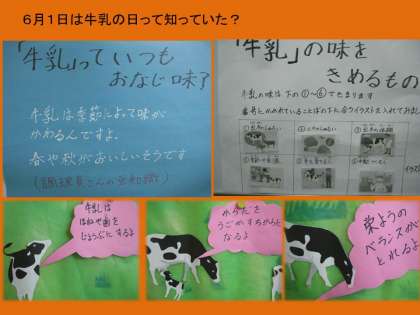 ６月１日は牛乳の日って知っていた？
「牛乳」っていつも
おなじ味？
牛乳は季節によって味が
かわるんですよ。
春や秋がおいしいそうです
(調理員さんの豆知識)
「牛乳」の味を
きめるもの
牛乳の味は下の①〜⑥できまります
牛乳は
ほねや歯を
じょうぶにするよ
からだを
うごかすちからに
なるよ
栄ようの
バランスが
とれるよ